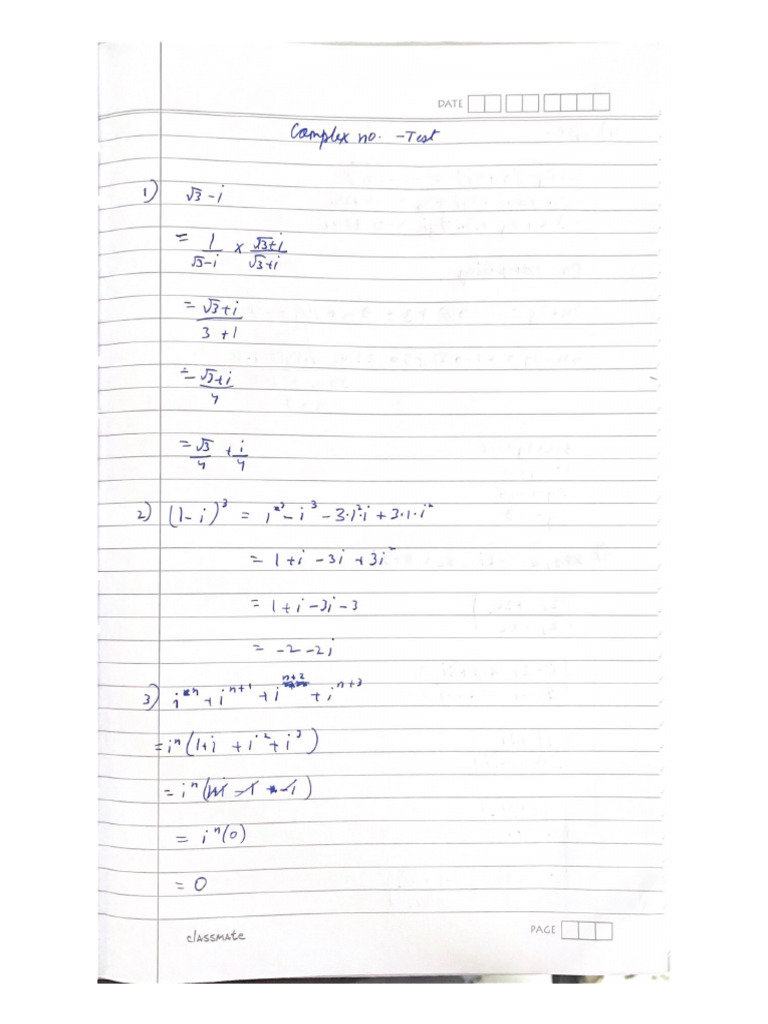 DATE
Complex no. - Test
1) √3 - i
= 1/(√3-i) × (√3+i)/(√3+i)
= (√3+i)/(3+1)
= (√3+i)/4
= √3/4 + i/4
2) (1-i)³ = 1³ - i³ - 3·1²·i + 3·1·i²
= 1 + i - 3i + 3i²
= 1 + i - 3i - 3
= -2 - 2i
3) iⁿ + iⁿ⁺¹ + iⁿ⁺² + iⁿ⁺³
= iⁿ(1+i + i² + i³)
= iⁿ(1+i - 1 - i)
= iⁿ(0)
= 0
classmate
PAGE